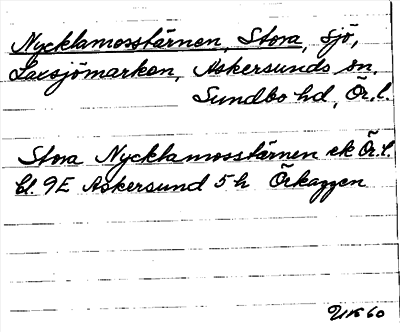 Nycklamosstärnen, Stora, sjö,
Laxsjömarken, Askersunds sn.
Sundbo hd, Ör.l.
Stora Nycklamosstärnen ek Ör.l.
bl. 9E Askersund 5h Örkaggen
UK 60